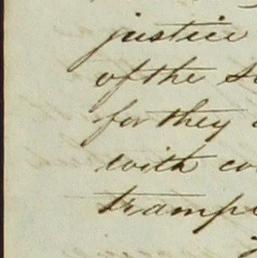 justice
of the S
for they
with co
tramp